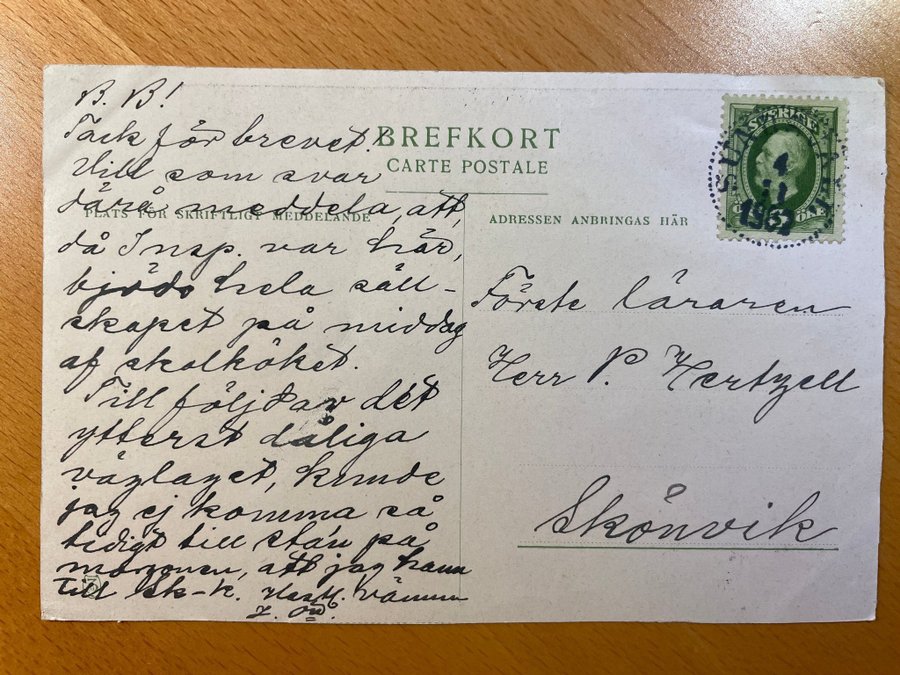 B. B!
Tack för brevet!
Vill som svar
därå meddela, att,
då Insp. var här,
bjöds hela säll-
skapet på middag
af skolköket.
Till följd av det
ytterst dåliga
väglaget, kunde
jag ej komma så
tidigt till stan på
morgonen, att jag hann
till sk-k.
BREFKORT
CARTE POSTALE
PLATS FÖR SKRIFTLIGT MEDDELANDE
ADRESSEN ANBRINGAS HÄR
4
11
Förste läraren
Herr P. Hertzell
Skönvik